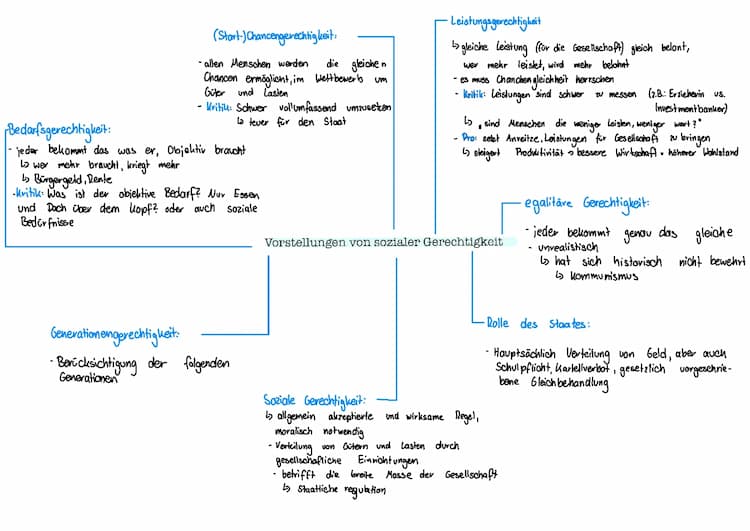 (Start-)Chancengerechtigkeit:
- allen Menschen werden die gleichen
Chancen ermöglicht, im Wettbewerb um
Güter und Lasten
- Kritik: Schwer vollumfassend umzusetzen
↳ teuer für den Staat
Leistungsgerechtigkeit
↳ gleiche Leistung (für die Gesellschaft) gleich belohnt,
wer mehr leistet, wird mehr belohnt
- es muss Chancengleichheit herrschen
- Kritik: Leistungen sind schwer zu messen (z.B.: Erzieherin vs.
Investmentbanker)
↳ „sind Menschen die weniger leisten, weniger wert?"
- Pro: setzt Anreitze, Leistungen für Gesellschaft zu bringen
↳ steigert Produktivität → bessere Wirtschaft → höherer Wohlstand
Bedarfsgerechtigkeit:
- jeder bekommt das was er, Objektiv braucht
↳ wer mehr braucht, kriegt mehr
↳ Bürgergeld, Rente
- Kritik: Was ist der objektive Bedarf? Nur Essen
und Dach über dem Kopf? oder auch soziale
Bedürfnisse
egalitäre Gerechtigkeit:
- jeder bekommt genau das gleiche
- unrealistisch
↳ hat sich historisch nicht bewehrt
↳ Kommunismus
Vorstellungen von sozialer Gerechtigkeit
Generationengerechtigkeit:
- Berücksichtigung der folgenden
Generationen
Rolle des Staates:
- Hauptsächlich Verteilung von Geld, aber auch
Schulpflicht, Kartellverbot, gesetzlich vorgeschrie-
bene Gleichbehandlung
Soziale Gerechtigkeit:
↳ allgemein akzeptierte und wirksame Regel,
moralisch notwendig
- Verteilung von Gütern und Lasten durch
gesellschaftliche Einrichtungen
- betrifft die breite Masse der Gesellschaft
↳ Staatliche regulation